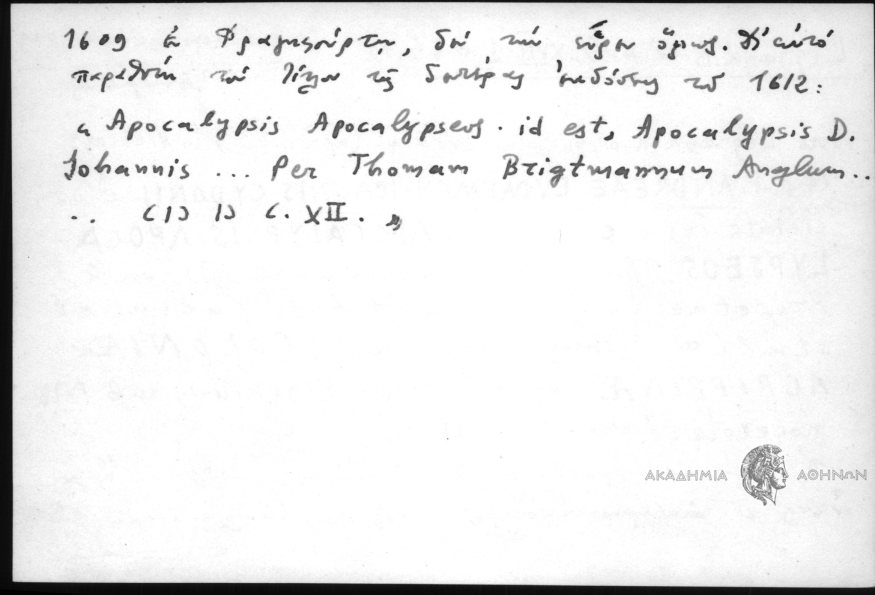 1609 ἐν Φραγκφούρτῃ, δὲν τὴν εὗρον ὅμως. Δι' αὐτὸ
παραθέτω τὸν τίτλον τῆς δευτέρας ἐκδόσεως τοῦ 1612:
« Apocalypsis Apocalypseos. id est, Apocalypsis D.
Johannis ... Per Thomam Brigtmannum Anglum..
.. CIƆ IƆ C. XII. »
ΑΚΑΔΗΜΙΑ ΑΘΗΝΩΝ